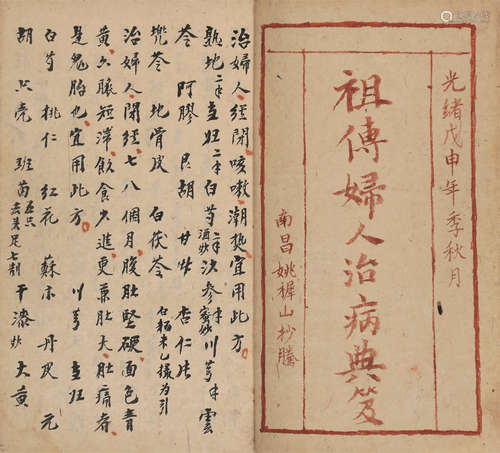 光緒戊申年季秋月
祖傳婦人治病典笈
南昌姚樨山抄謄
治婦人經閉咳嗽潮熱宜用此方
熟地二半 立班二半 白芍二半酒炒 沙參 川芎半 雲
苓 阿膠 艮胡 甘艸 杏仁
兜苓 地骨皮 白茯苓 為引
治婦人閉經七八個月腹肚堅硬面色青
黃六脈短滯飲食少進更兼肚大肚痛者
是鬼胎也宜用此方 川芎 立班
白芍 桃仁 紅花 蘇木 丹皮 元
胡 只壳 班苗五只去头足七制 干漆炒 大黃